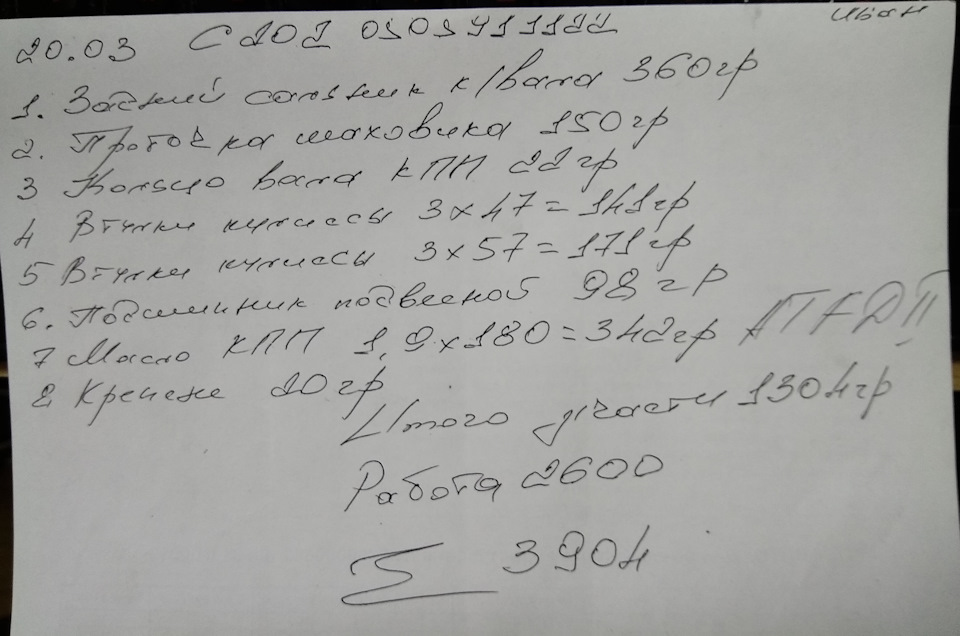 Иван
20.03 С202 0509411122
1. Задний сальник к/вала 360гр
2. Проточка маховика 150гр
3 Кольцо вала КПП 22гр
4 Втулки кулиссы 3×47=141гр
5 Втулки кулиссы 3×57=171гр
6. Подшипник подвесной 98гр
7 Масло КПП 1,9×180=342гр ATF DII
8 Крепеж 20гр
Итого з/части 1304гр
Работа 2600
Σ 3904